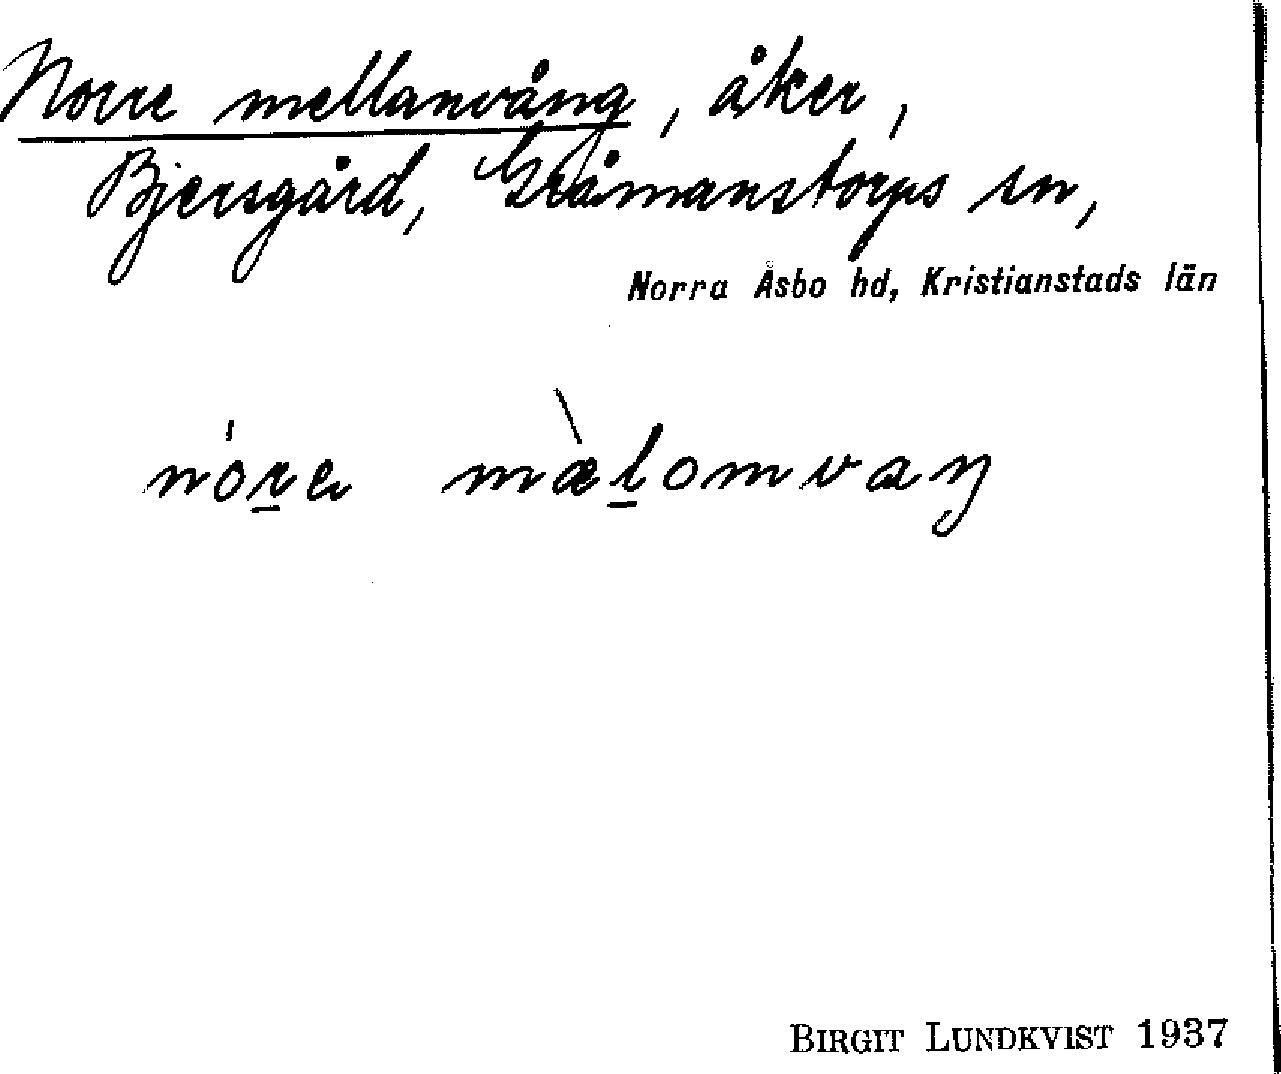 Norre mellanvång, åker,
Bjersgård, Gråmanstorps sn,
Norra Åsbo hd, Kristianstads län
nó̱re mæ̀ḻomvaŋ
BIRGIT LUNDKVIST 1937